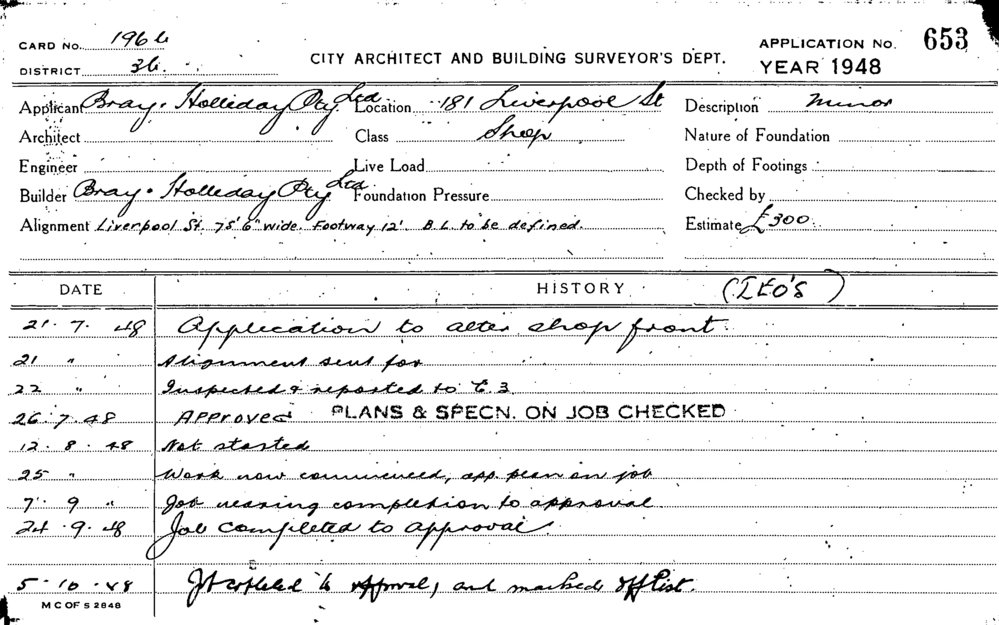 CARD NO. 1964
CITY ARCHITECT AND BUILDING SURVEYOR'S DEPT.
APPLICATION NO. 653
DISTRICT 36.
YEAR 1948
Applicant Bray & Holliday Pty Ltd Location 181 Liverpool St Description Minor
Architect Class Shop Nature of Foundation
Engineer Live Load Depth of Footings
Builder Bray & Holliday Pty Ltd Foundation Pressure Checked by
Alignment Liverpool St. 75' 6" wide. Footway 12'. B.L. to be defined. Estimate £300
DATE HISTORY
21 · 7 · 48 Application to alter shop front.
21 " Alignment sent for
22 " Inspected & reported to
26 · 7 · 48 APPROVED PLANS & SPECN. ON JOB CHECKED
12 · 8 · 48 Not started
25 " Work now commenced, app. plan on job
7 · 9 " Job nearing completion to approval
24 · 9 · 48 Job completed to approval.
5 · 10 · 48 to approval, and marked off list.
M C OF S 2848